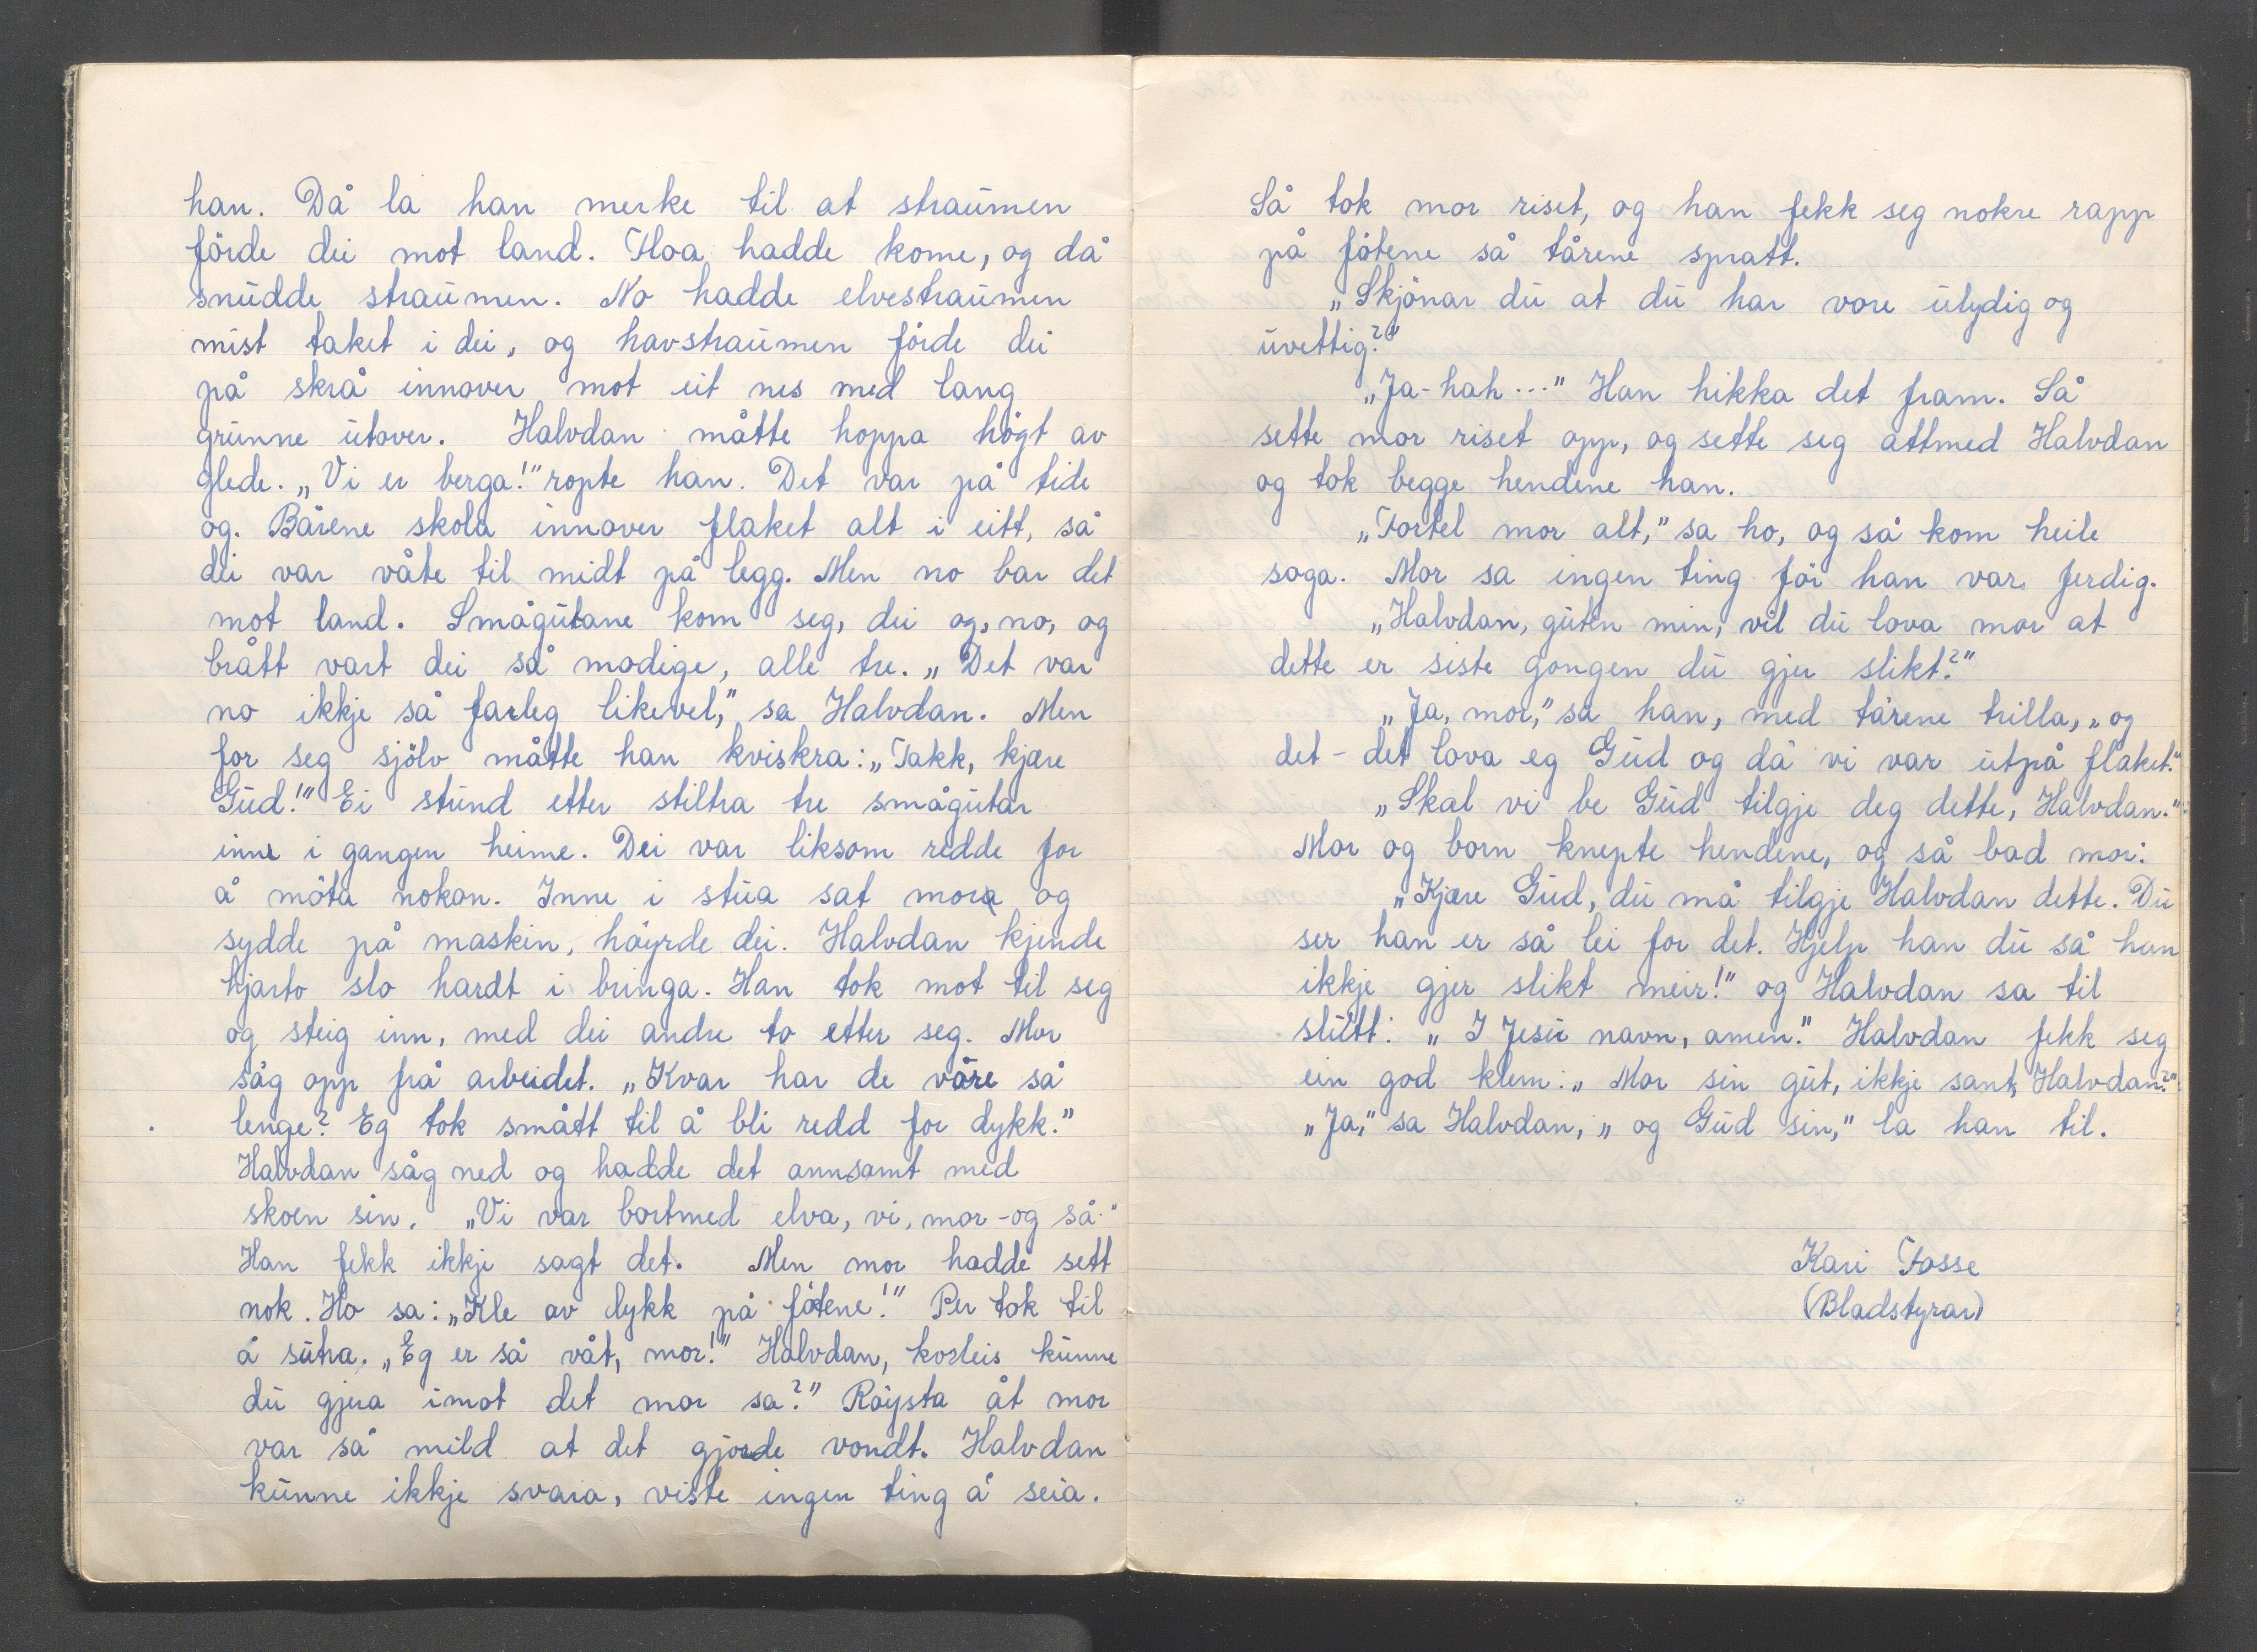 han. Då la han merke til at straumen
förde dei mot land. Floa hadde kome, og då
snudde straumen. No hadde elvestraumen
mist taket i dei, og havstraumen förde dei
på skrå innover mot eit nes med lang
grunne utover. Halvdan måtte hoppa högt av
glede. „Vi er berga!" ropte han. Det var på tide
og. Bårene skola innover flaket alt i eitt, så
dei var våte til midt på legg. Men no bar det
mot land. Smågutane kom seg, dei og, no, og
brått vart dei så modige, alle tre. „Det var
no ikkje så farleg likevel," sa Halvdan. Men
for seg sjölv måtte han kviskra: „Takk, kjære
Gud!" Ei stund etter stiltra tre smågutar
inne i gangen heime. Dei var liksom redde for
å möta nokon. Inne i stua sat mora og
sydde på maskin, höyrde dei. Halvdan kjende
hjarto slo hardt i bringa. Han tok mot til seg
og steig inn, med dei andre to etter seg. Mor
såg opp frå arbeidet. „Kvar har de våre så
lenge? Eg tok smått til å bli redd for dykk."
Halvdan såg ned og hadde det annsamt med
skoen sin. „Vi var bortmed elva, vi, mor - og så-"
Han fekk ikkje sagt det. Men mor hadde sett
nok. Ho sa: „Kle av dykk på fötene!" Per tok til
å sutra. „Eg er så våt, mor!" Halvdan, korleis kunne
du gjera imot det mor sa?" Röysta åt mor
var så mild at det gjorde vondt. Halvdan
kunne ikkje svara, viste ingen ting å seia.
Så tok mor riset, og han fekk seg nokre rapp
på fötene så tårene spratt.
„Skjönar du at du har vore ulydig og
uvettig?"
„Ja-hah..." Han hikka det fram. Så
sette mor riset opp, og sette seg attmed Halvdan
og tok begge hendene han.
„Fortel mor alt," sa ho, og så kom heile
soga. Mor sa ingen ting för han var ferdig.
„Halvdan, guten min, vil du lova mor at
dette er siste gongen du gjer slikt?"
„Ja, mor," sa han, med tårene trilla, „og
det - det lova eg Gud og då vi var utpå flaket."
„Skal vi be Gud tilgje deg dette, Halvdan."
Mor og born knepte hendene, og så bad mor:
„Kjære Gud, du må tilgje Halvdan dette. Du
ser han er så lei for det. Hjelp han du så han
ikkje gjer slikt meir!" og Halvdan sa til
slutt: „I Jesu navn, amen." Halvdan fekk seg
ein god klem: „Mor sin gut, ikkje sant, Halvdan?"
„Ja," sa Halvdan, „og Gud sin," la han til.
Kari Fosse
(Bladstyrar)